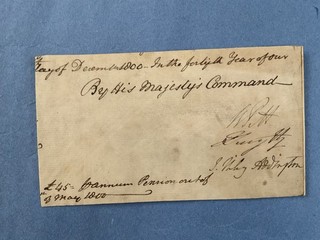 Day of December 1800 - In the fortyth Year of our
By His Majesty's Command
W Pitt
J. Hiley Addington
£45 = p annum Pension out of
of May 1800